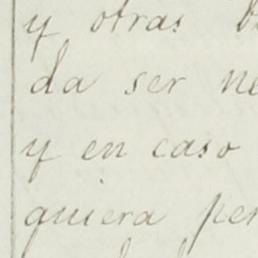 y otras
da ser ne
y en caso
quiera per